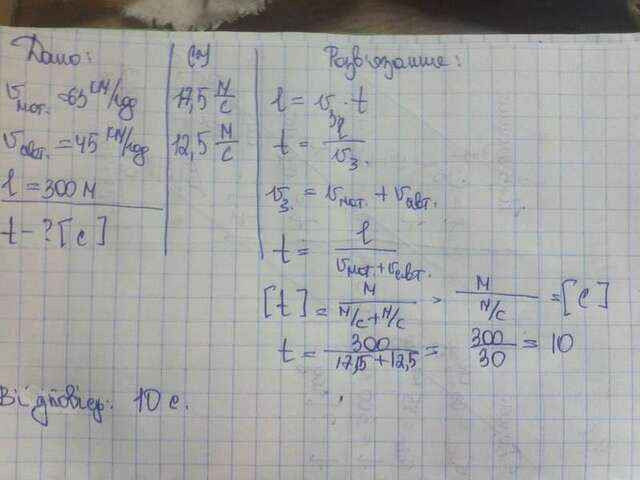 Дано:
vмот. = 63 км/год
vавт. = 45 км/год
l = 300 м
t - ? [с]
СИ
17,5 м/с
12,5 м/с
Розв'язання:
l = vз · t
t = l/vз.
vз. = vмот. + vавт.
t = l/(vмот. + vавт.)
[t] = м/(м/с + м/с) = м/(м/с) = [с]
t = 300/(17,5 + 12,5) = 300/30 = 10
Відповідь: 10 с.